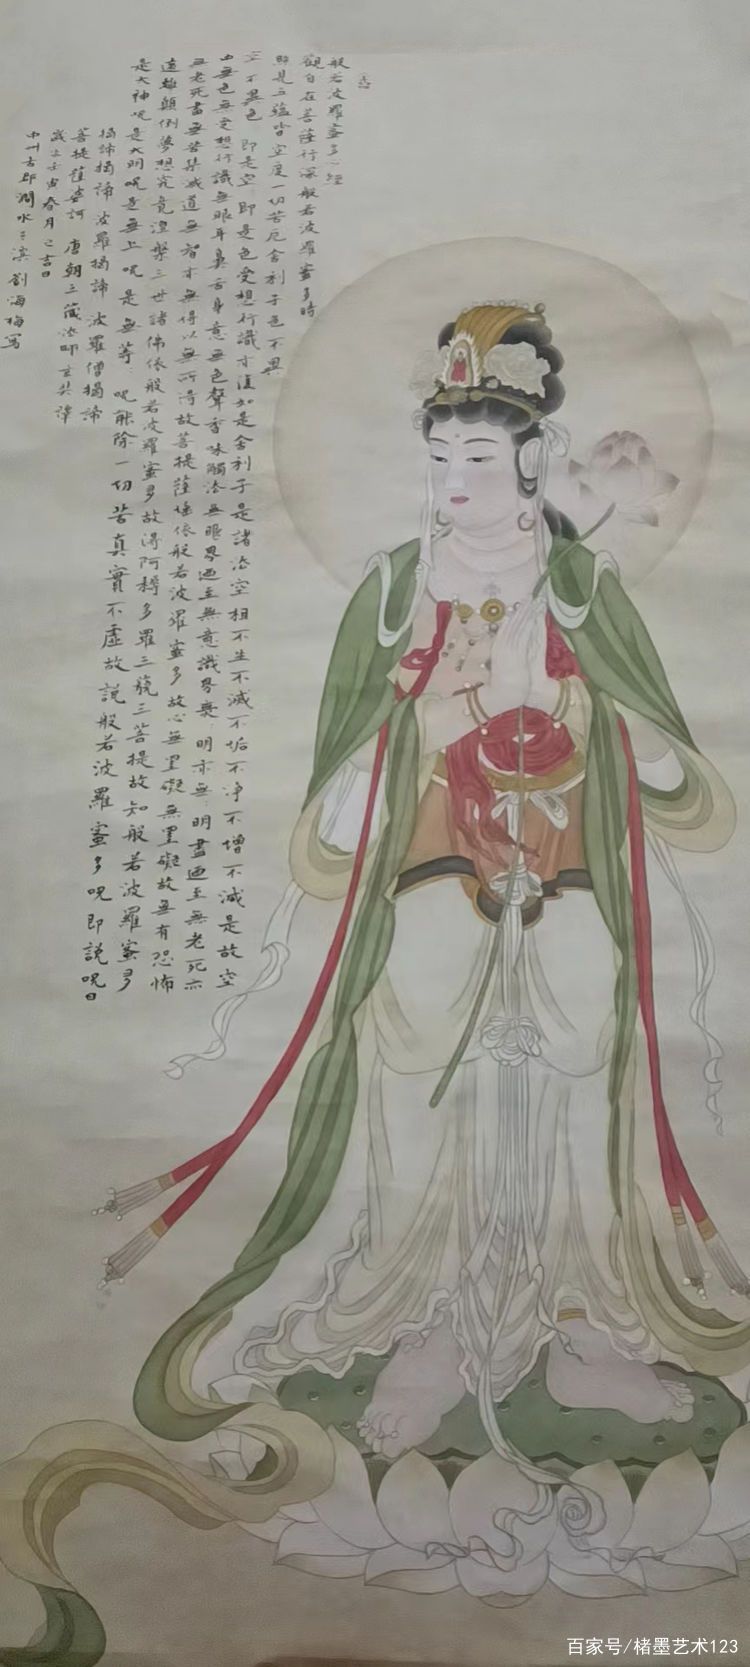 般若波羅蜜多心經
觀自在菩薩行深般若波羅蜜多時
照見五蘊皆空度一切苦厄舍利子色不異
空不異色 即是空 即是色受想行識亦復如是舍利子是諸法空相不生不滅不垢不淨不增不減是故空
中無色無受想行識無眼耳鼻舌身意無色聲香味觸法無眼界乃至無意識界無 明亦無 明盡乃至無老死亦
無老死盡無苦集滅道無智亦無得以無所得故菩提薩埵依般若波羅蜜多故心無罣礙無罣礙故無有恐怖
遠離顛倒夢想究竟涅槃三世諸佛依般若波羅蜜多故得阿耨多羅三藐三菩提故知般若波羅蜜多
是大神咒是大明咒是無上咒是無等 咒能除一切苦真實不虛故說般若波羅蜜多咒即說咒曰
揭諦揭諦 波羅揭諦 波羅僧揭諦
菩提薩婆訶 唐朝三藏法師玄奘譯
歲次壬寅春月之吉日
中州古郡澗水之濱劉海梅寫
百家号/楮墨艺术123